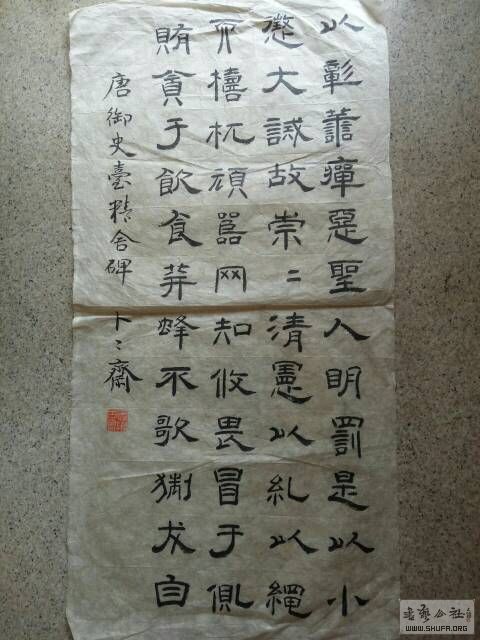 以彰譱癉惡聖人明罰是以小
懲大誡故崇〻清憲以糺以繩
而檮杌頑嚚网知攸畏冒于
賄貪于飲食莽蜂不歌猘犬自
唐御史臺精舍碑 卜〻齋
WWW.SHUFA.ORG